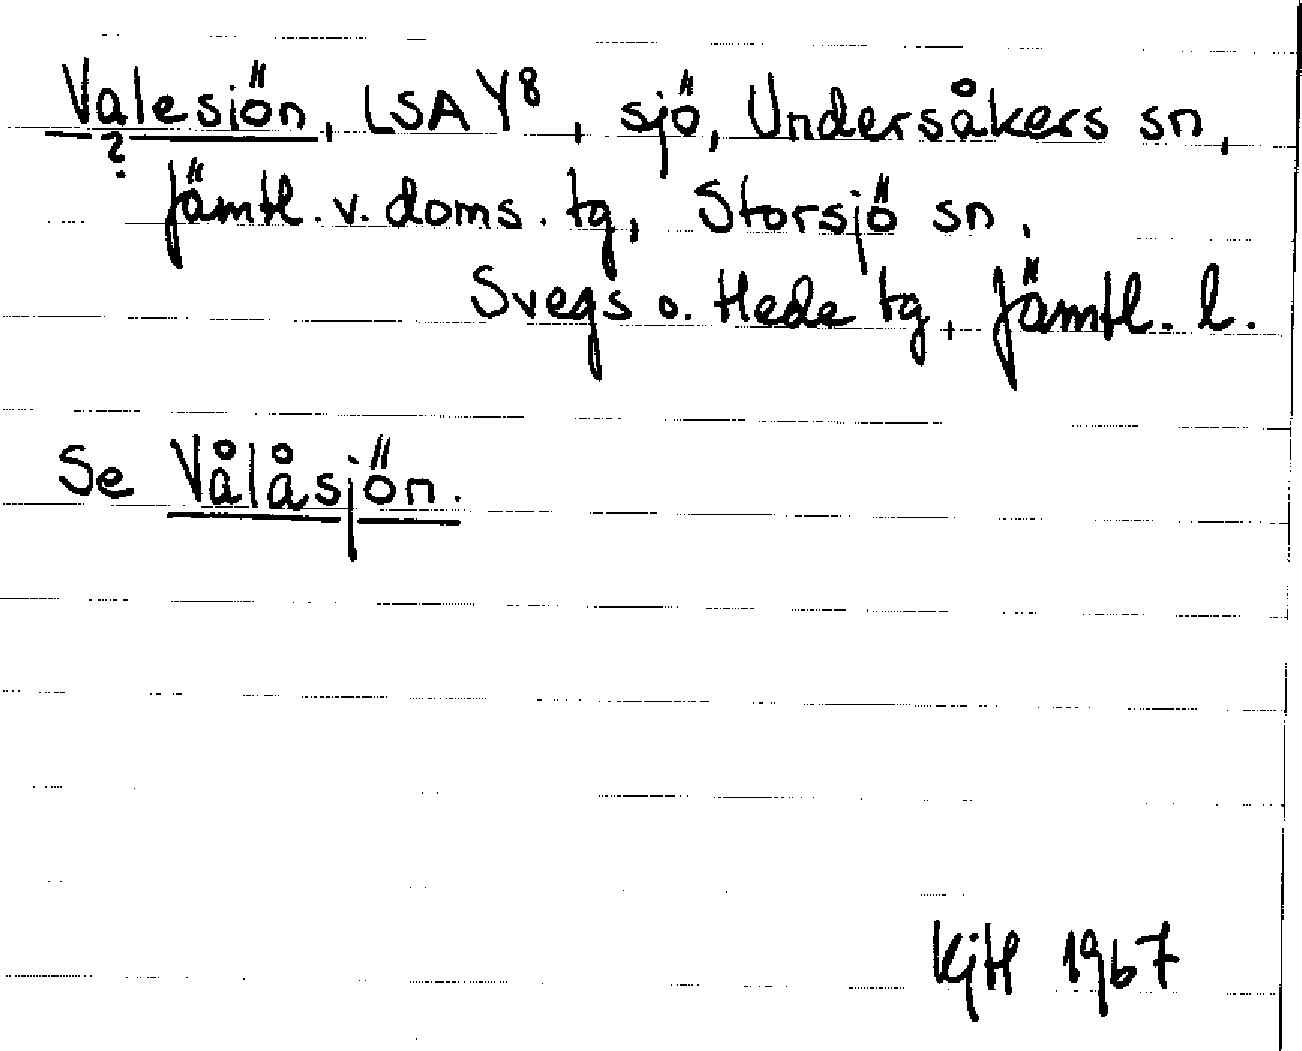 Valesiön, LSA Y8, sjö, Undersåkers sn,
?
Jämtl. v. doms. tg, Storsjö sn,
Svegs o. Hede tg, Jämtl. l.
Se Vålåsjön.
KjH 1967